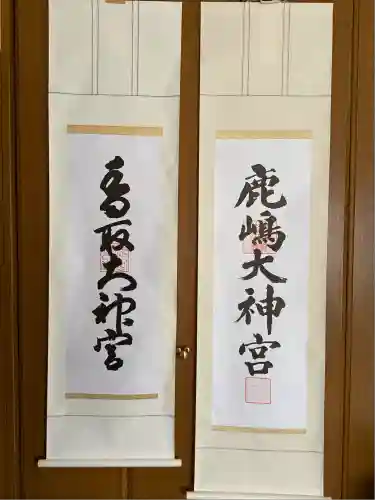 鹿嶋大神宮
香取大神宮